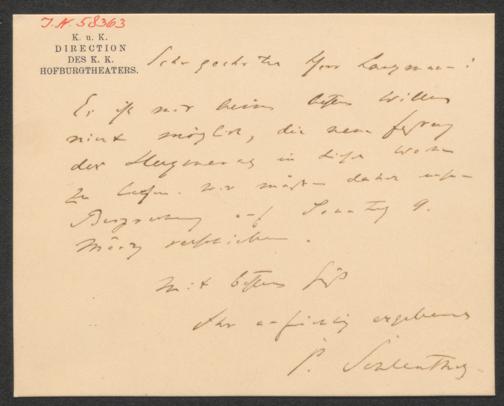 I.N. 58363
K. u. K.
DIRECTION
DES K. K.
HOFBURGTHEATERS.
Sehr geehrter Herr Langmann!
Es ist mir beim besten Willen
nicht möglich, die neue Fassung
der in dieser Woche
zu lesen. Wir müssen daher unsere
Besprechung auf Sonntag 9.
März verschieben.
Mit bestem Gruß
Ihr aufrichtig ergebener
P. Schlenther